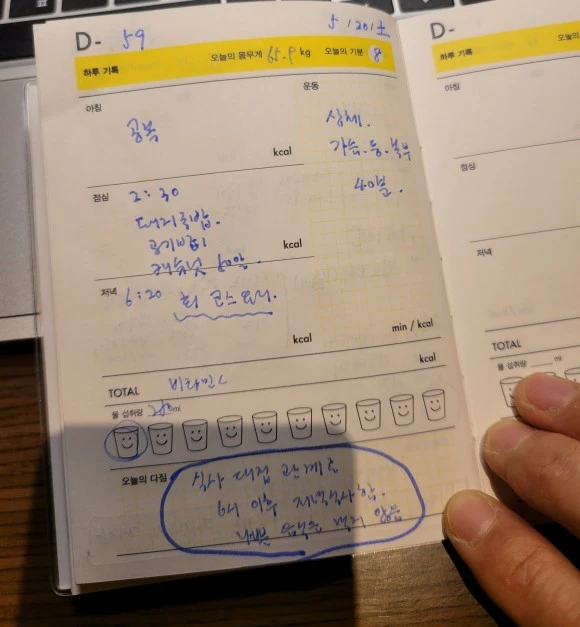 D- 59
5/20/土
하루 기록 오늘의 몸무게 65.9 kg 오늘의 기분 8
아침
공복
kcal
운동
상체.
가슴.등.복부
40분.
점심
2:30
돼지국밥.
공기밥1
캐슈넛 60알.
kcal
저녁
6:20 회 코스요리.
kcal
min / kcal
TOTAL 비타민C
kcal
물 섭취량 250 ml
오늘의 다짐
식사 대접 관계로
6시 이후 저녁식사함.
나쁜 음식은 먹지 않음
D-
하루 기록
오늘의
아침
점심
저녁
TOTAL
물 섭취량 ml